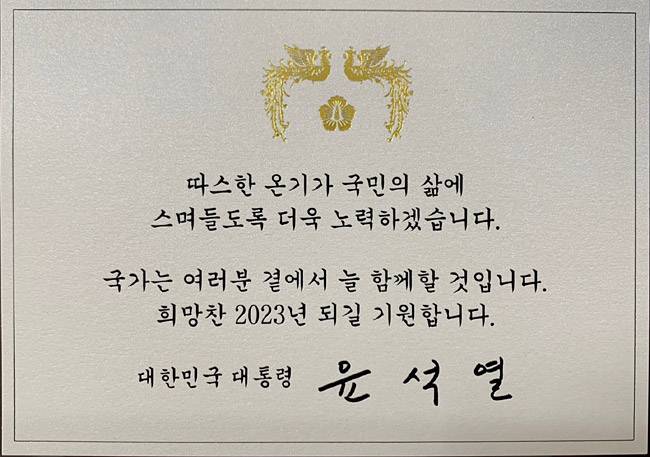 따스한 온기가 국민의 삶에
스며들도록 더욱 노력하겠습니다.
국가는 여러분 곁에서 늘 함께할 것입니다.
희망찬 2023년 되길 기원합니다.
대한민국 대통령 윤석열